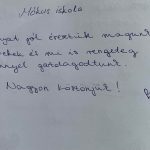 Mókus iskola
jól éreztük magunk
ekek és mi is rengeteg
nyel gazdagodtunk.
Nagyon köszönjük!